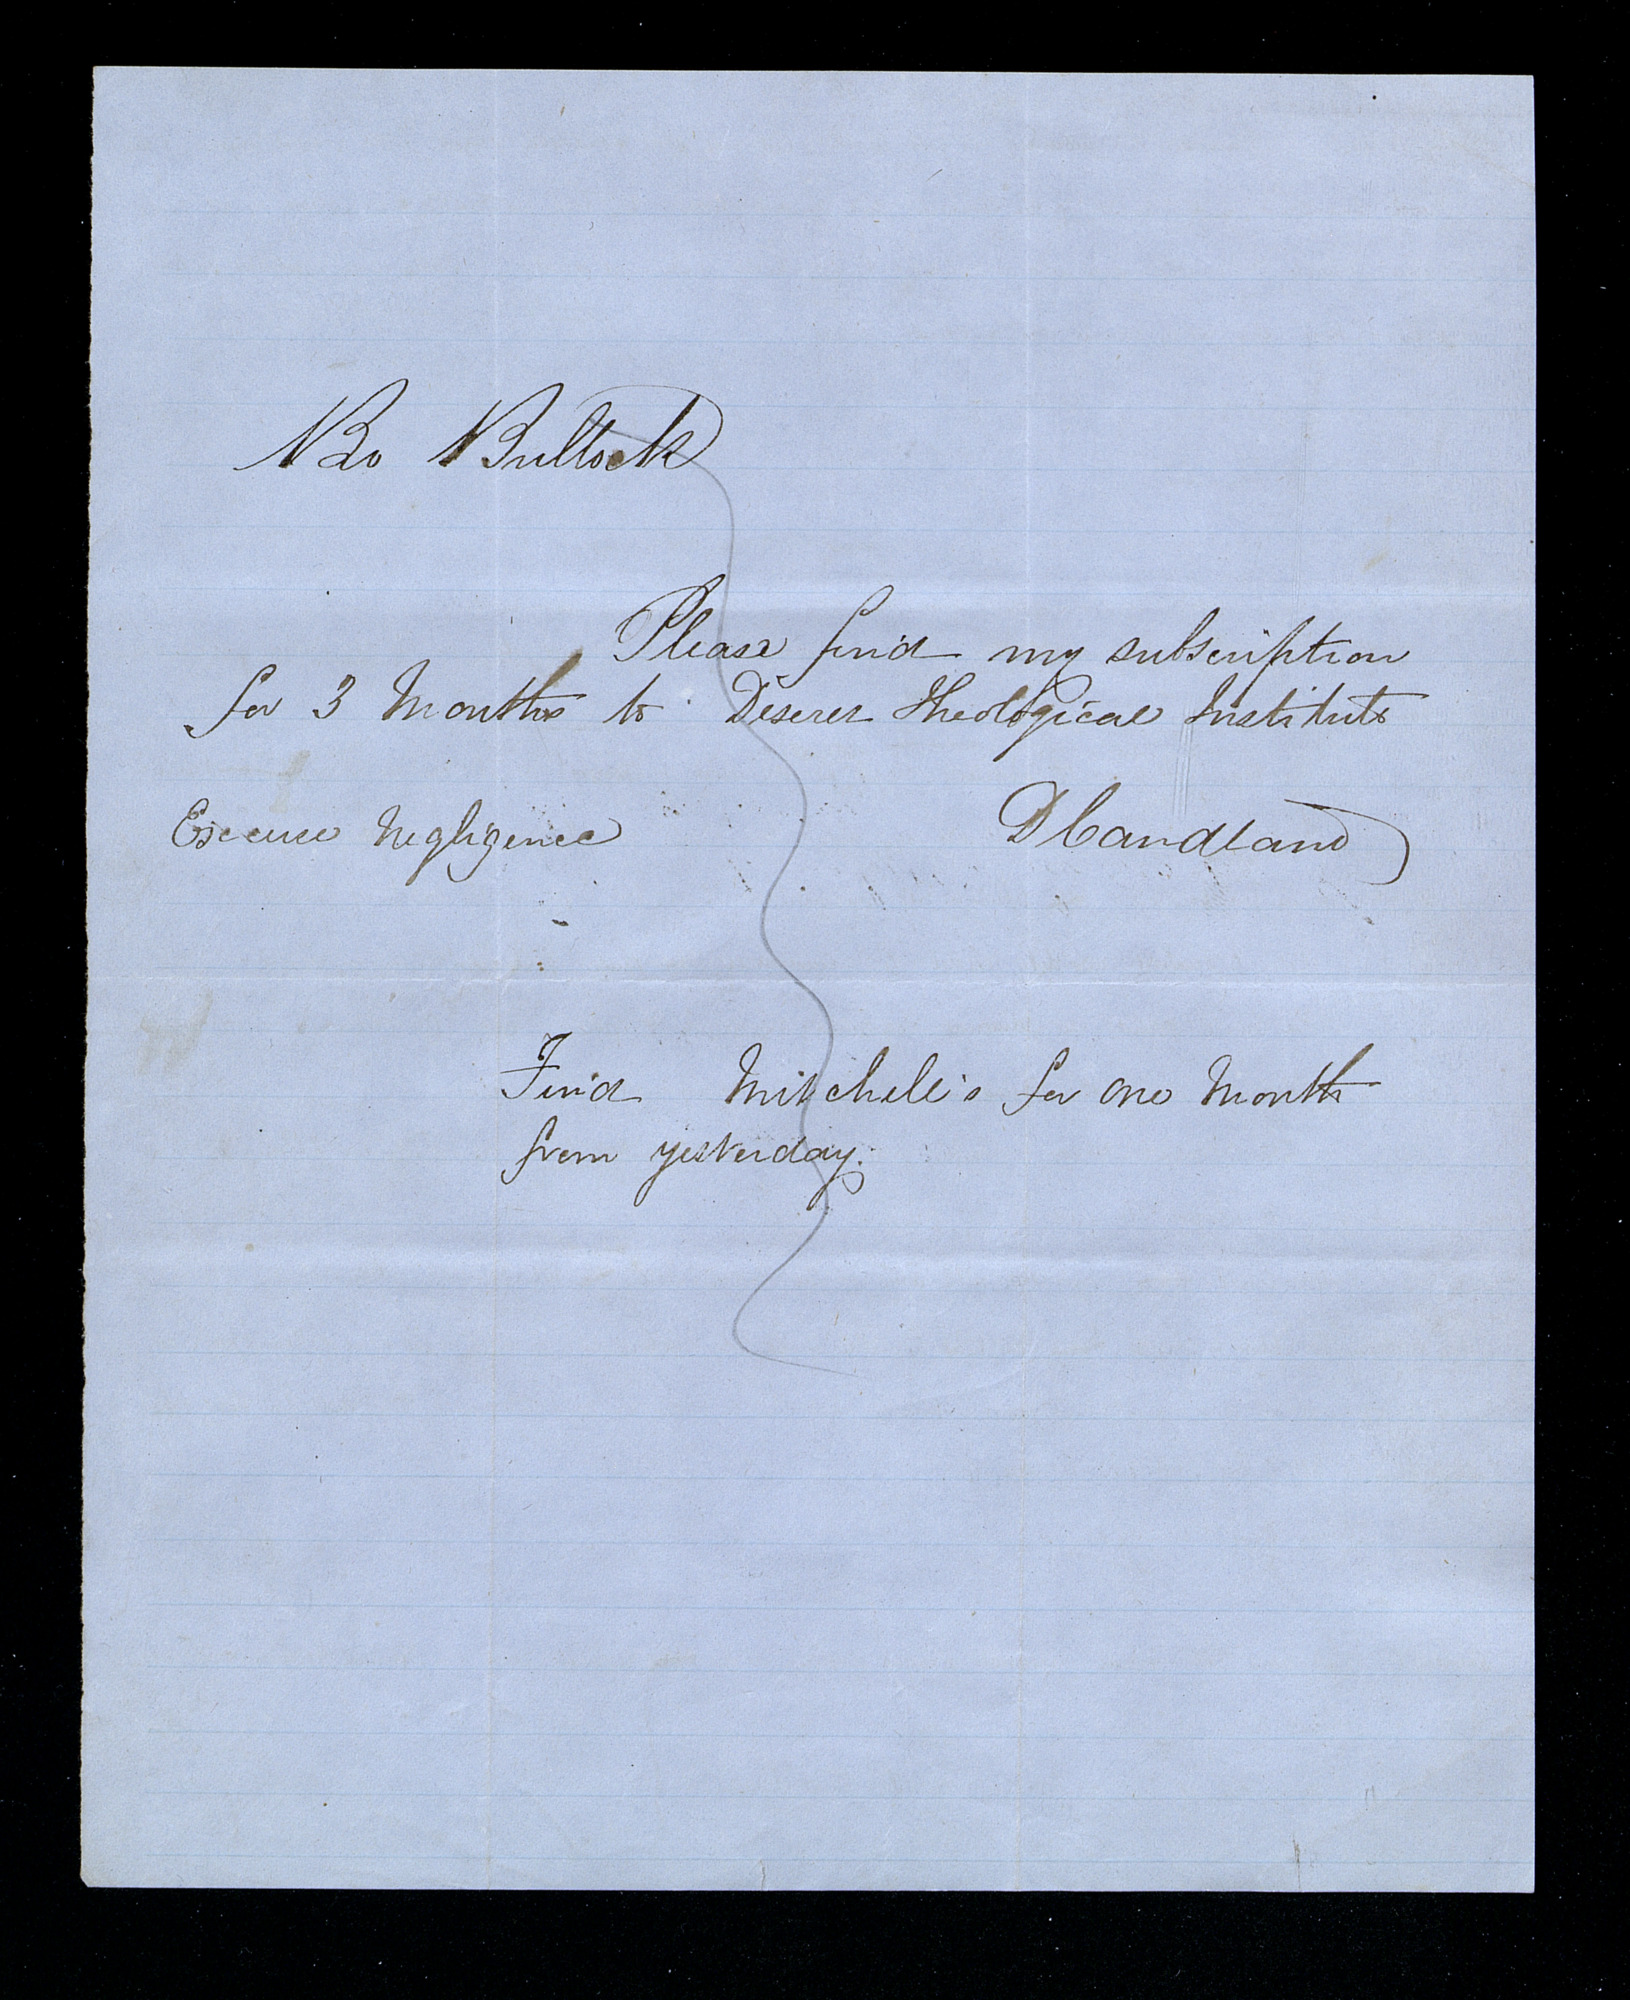 Bro Bullock
Please find my subscription
for 3 Months to Deseret Theological Institute
Excuse Negligence D Candland
Find Mitchell's for one Month
from yesterday.